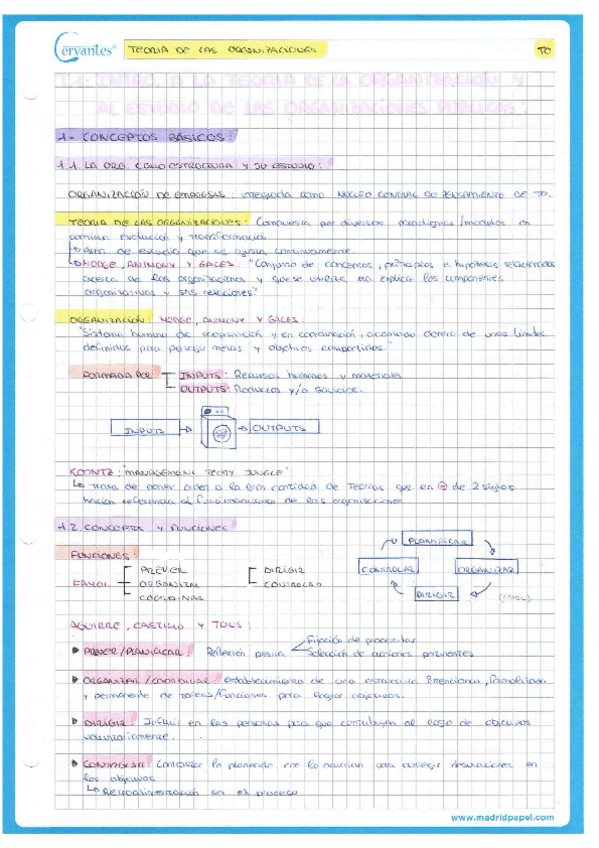 Cervantes® TEORIA DE LAS ORGANIZACIONES TO
T.1: INTRO. A LA TEORIA DE LA ORGANIZACIÓN Y
AL ESTUDIO DE LAS ORGANIZACIONES PÚBLICAS:
1.- CONCEPTOS BÁSICOS:
1.1. LA ORG. COMO ESTRUCTURA Y SU ESTUDIO:
ORGANIZACIÓN DE EMPRESAS: integrada como NÚCLEO CENTRAL DE PENSAMIENTO DE TO.
TEORIA DE LAS ORGANIZACIONES: Compuesta por diversos paradigmas/modelos en
continua evolución y transformación.
Área de estudio que se ajusta continuamente.
HODGE, ANTHONY Y GALES: "Conjunto de conceptos, principios e hipótesis relacionadas
acerca de las organizaciones y que se utiliza para explicar los componentes
organizativos y sus relaciones"
ORGANIZACIÓN: HODGE, ANTHONY Y GALES:
"Sistema humano de cooperación y en coordinación, acomodado dentro de unos límites
definidos para perseguir metas y objetivos compartidos."
FORMADA POR INPUTS: Recursos humanos y materiales
OUTPUTS: Productos y/o servicios.
INPUTS OUTPUTS
KOONTZ: "MANAGEMENT TEORY JUNGLE"
Trata de poner orden a la gran cantidad de teorías que en de 2 siglos
hacían referencia al funcionamiento de las organizaciones
1.2. CONCEPTOS Y FUNCIONES:
PLANIFICAR
FUNCIONES:
PREVER DIRIGIR CONTROLAR ORGANIZAR
FAYOL ORGANIZAR CONTROLAR
COORDINAR DIRIGIR
AGUIRRE, CASTILLO Y TOUS:
PREVER/PLANIFICAR: Reflexión previa Fijación de
Selección de acciones
ORGANIZAR/COORDINAR: establecimiento de una estructura intencional, formalizada
y permanente de tareas/funciones para lograr objetivos.
DIRIGIR: Influir en las personas para que contribuyan al logro de objetivos
voluntariamente.
CONTROLAR: Comparar lo planeado con lo para corregir desviaciones en
los objetivos
Retroalimentación en el proceso
www.madridpapel.com